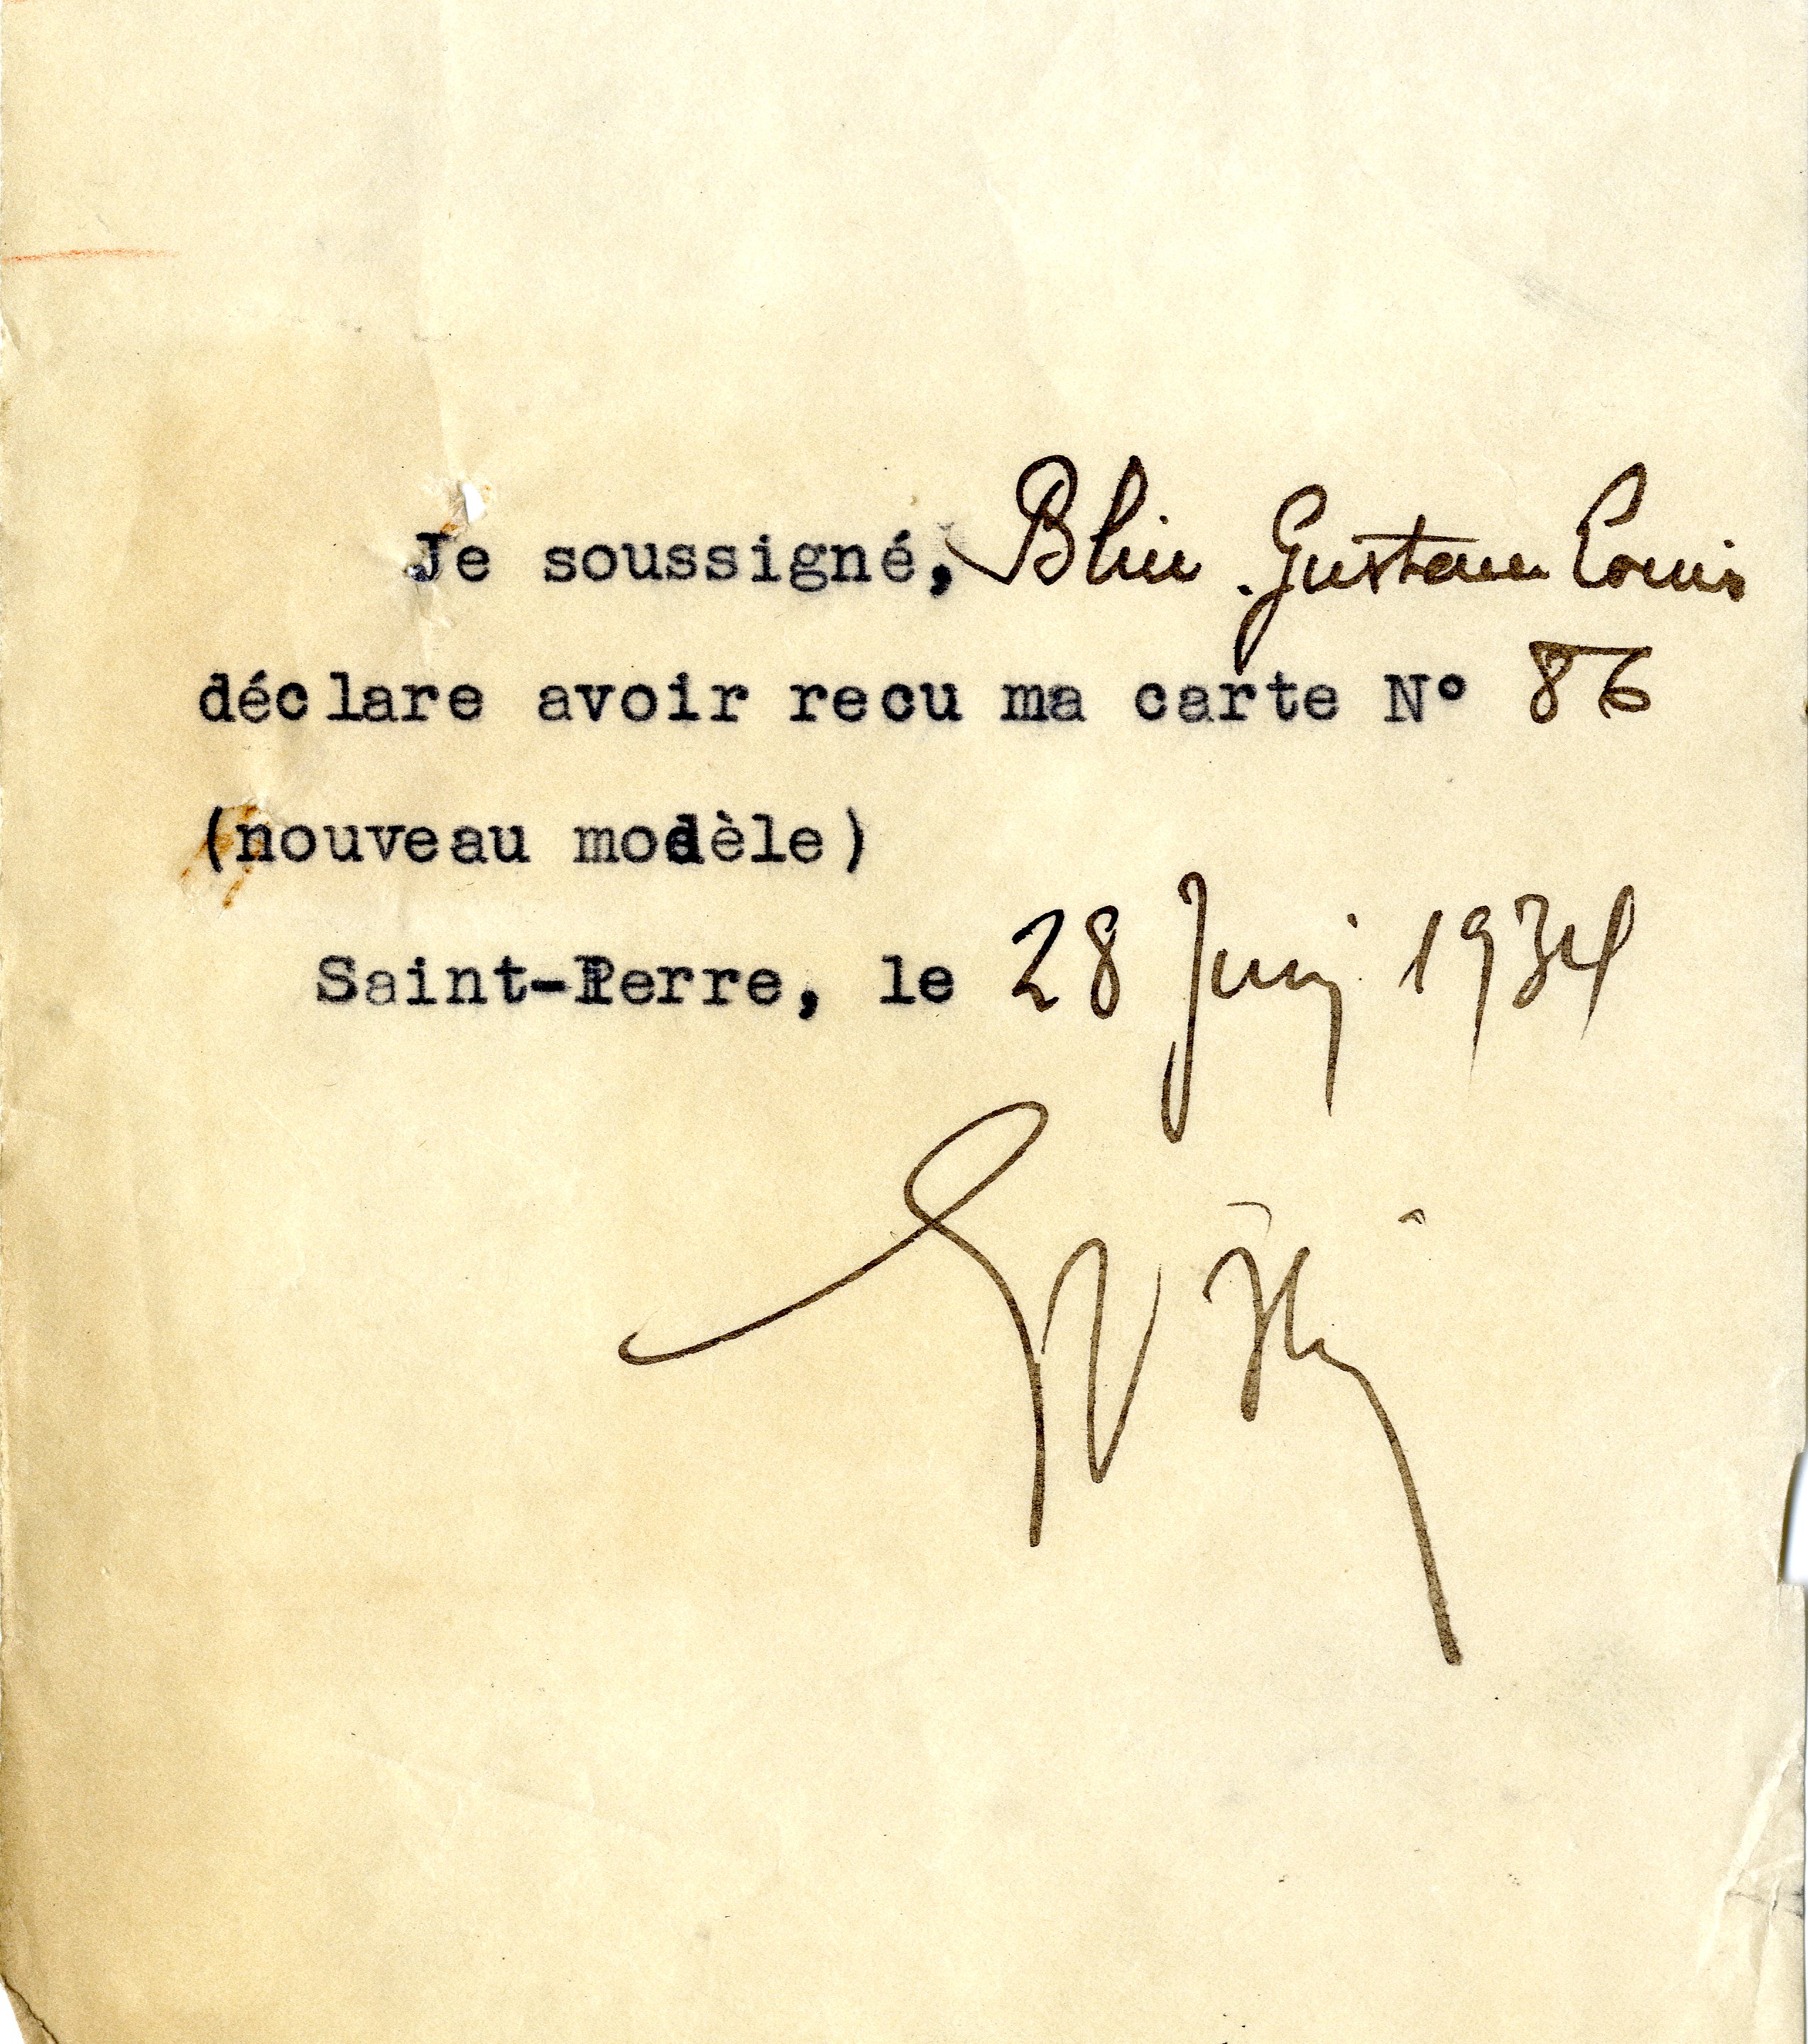 Je soussigné, Blin . Gustave Louis
déclare avoir recu ma carte N° 86
(nouveau modèle)
Saint-Perre, le 28 Juin 1934